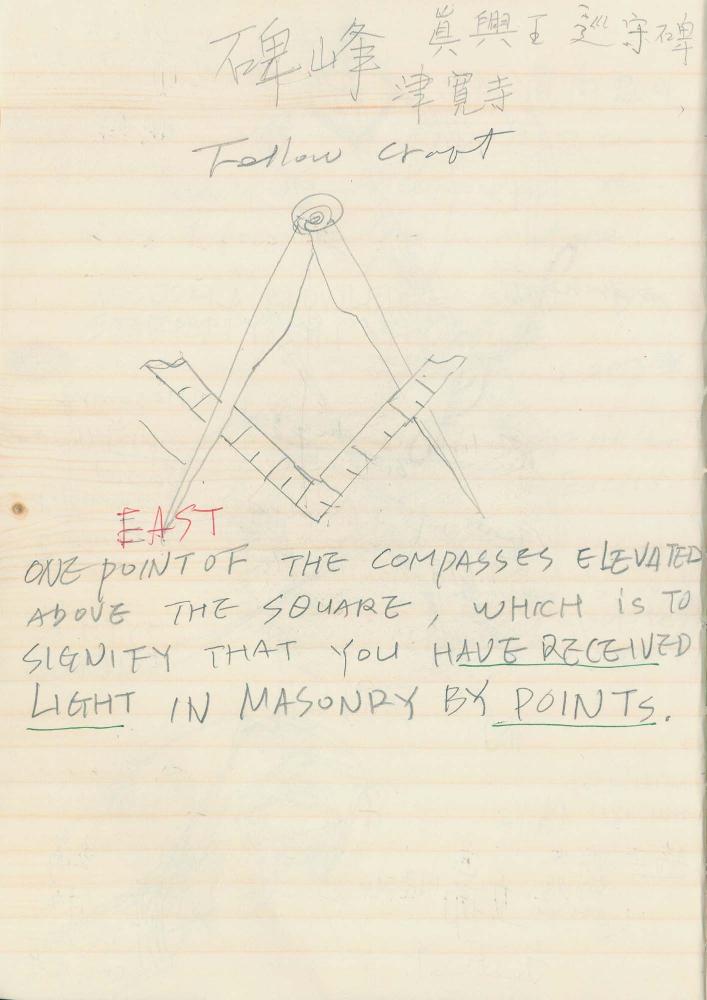 碑峰 眞興王 巡守碑
津寬寺
Fellow craft
EAST
ONE POINT OF THE COMPASSES ELEVATED
ABOVE THE SQUARE, WHICH is TO
SIGNIFY THAT YOU HAVE RECEIVED
LIGHT IN MASONRY BY POINTS.